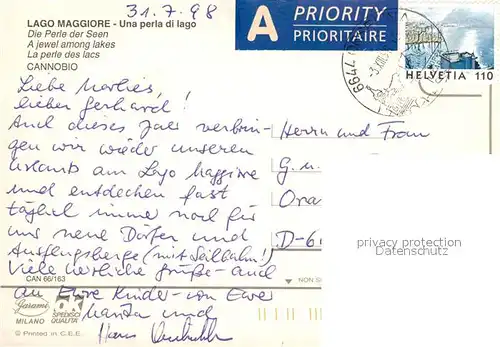 31.7.98
LAGO MAGGIORE - Una perla di lago
Die Perle der Seen
A jewel among lakes
La perle des lacs
CANNOBIO
A PRIORITY
PRIORITAIRE
6644
HELVETIA 110
Liebe Marlies,
lieber Gerhard!
Auch dieses Jahr verbrin-
gen wir wieder unseren
Urlaub am Lago Maggiore
und entdecken fast
täglich immer noch für
uns neue Dörfer und
Ausflugsberge (mit Seilbahn!)
Viele herzliche Grüße - auch
an Eure Kinder - von Eurer
und
Hans
Herrn und Frau
G. u.
D-6
privacy protection
Datenschutz
CAN 66/163
NON S
Garami
MILANO
SPEDISCI
QUALITÀ
© Printed in C.E.E.